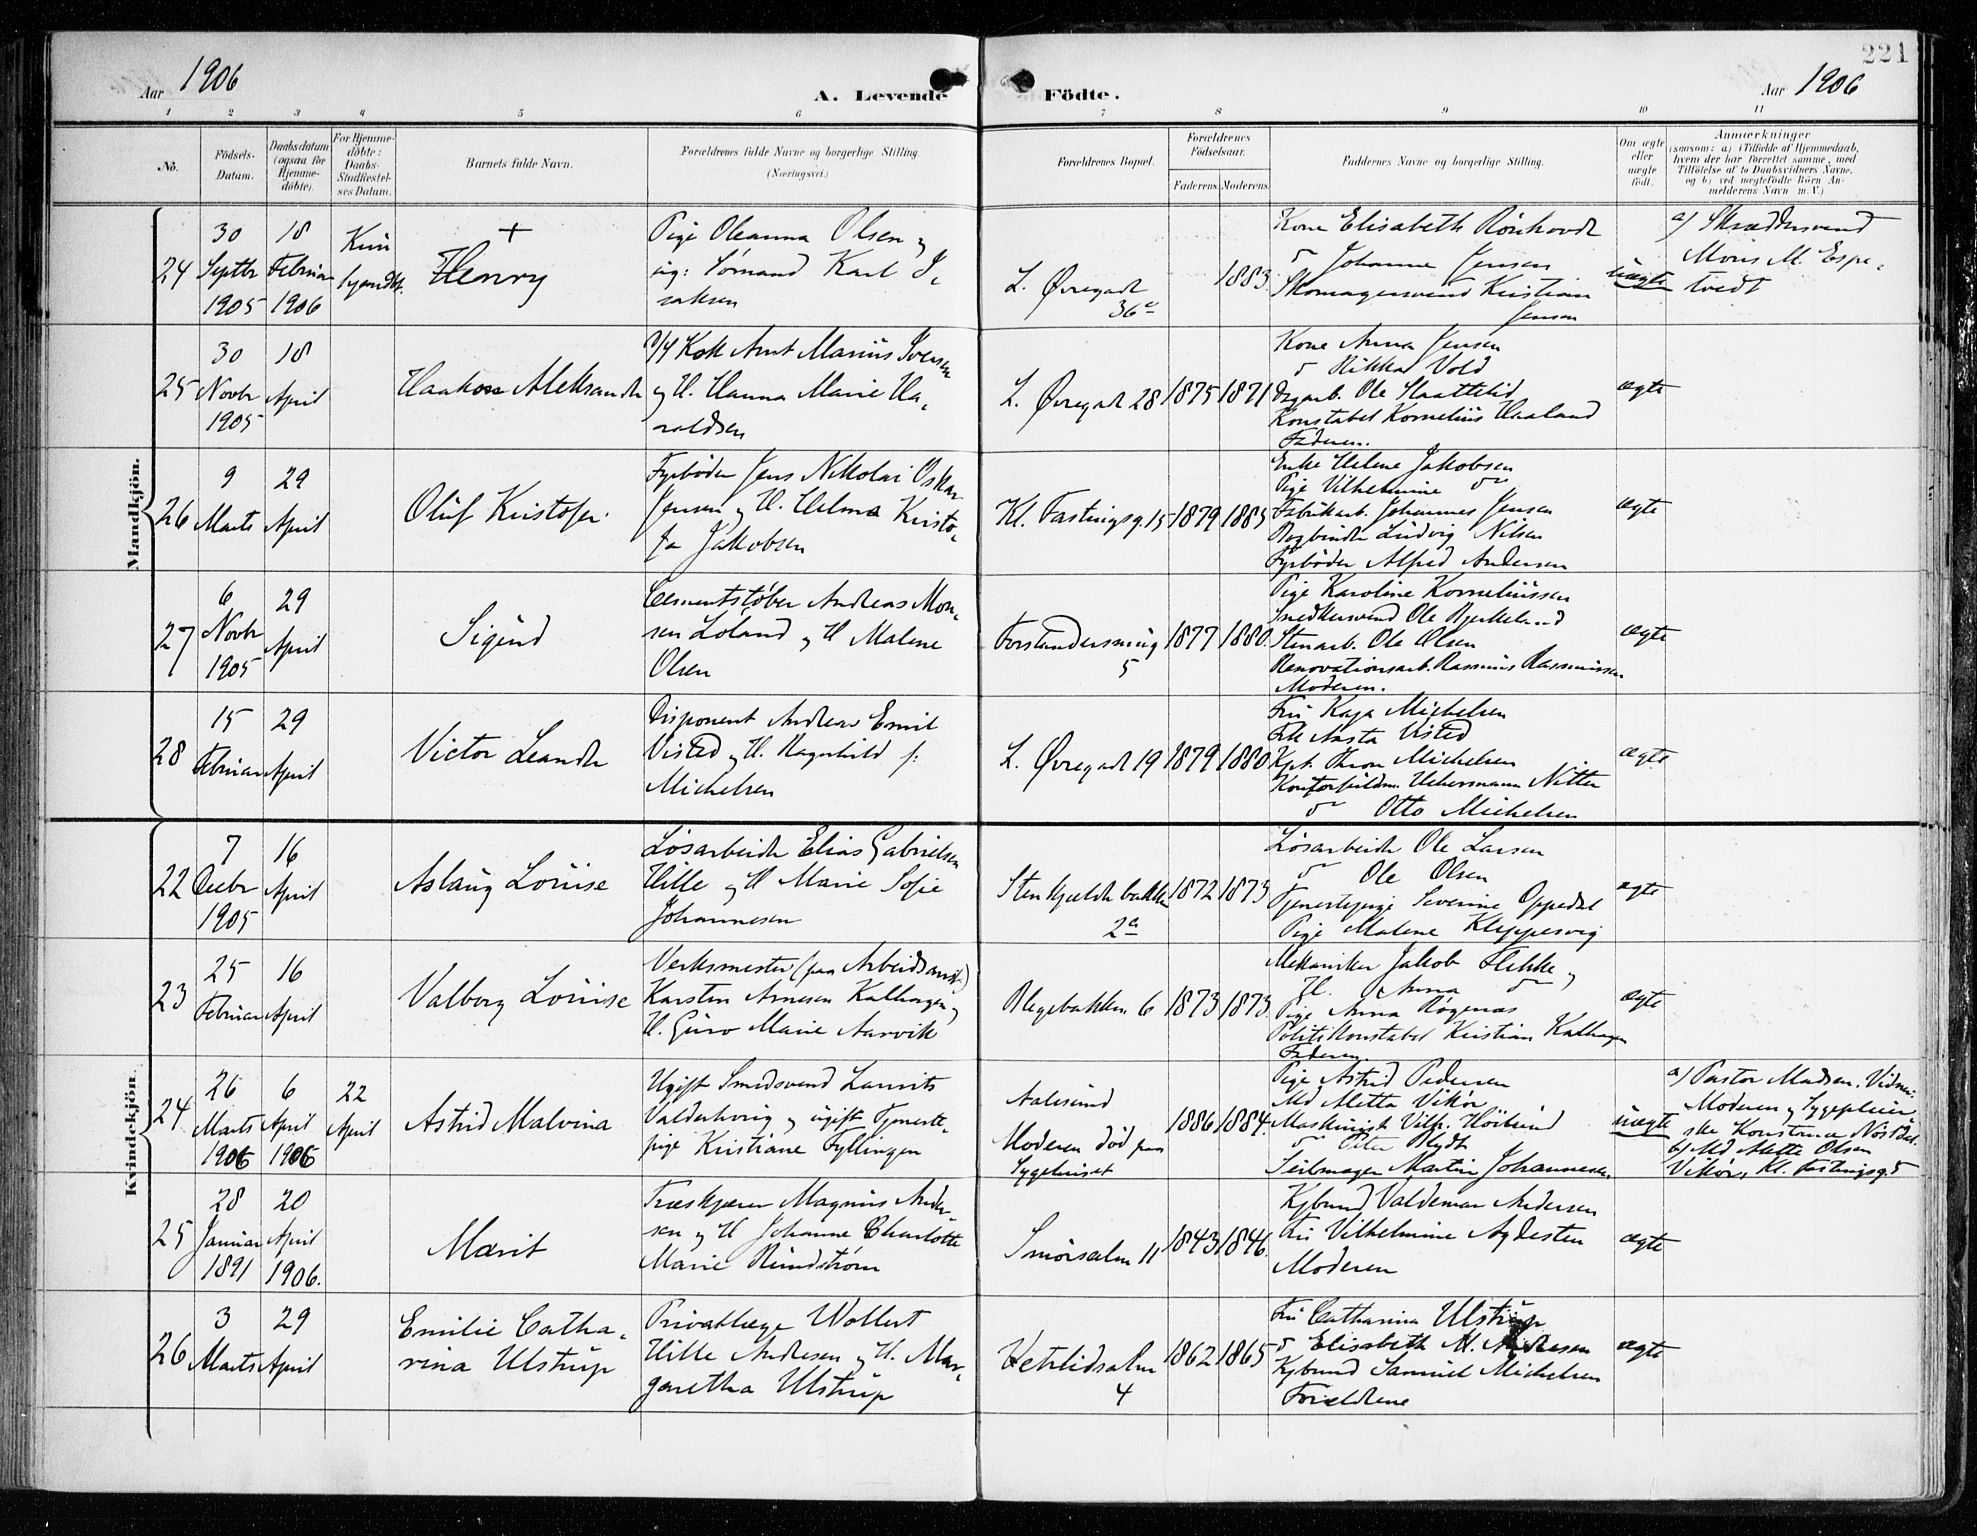 221
Aar 1906
A. Levende Födte.
Aar 1906
1 2 3 4 5 6 7 8 9 10 11
No.
Födsels-
Datum.
Daabsdatum
(ogsaa for
Hjemme-
döbte).
For Hjemme-
döbte:
Daabs-
Stadfæstel-
ses Datum.
Barnets fulde Navn.
Forældrenes fulde Navne og borgerlige Stilling
(Næringsvei.)
Forældrenes Bopæl.
Forældrenes
Födselsaar.
Faderens. Moderens.
Faddernes Navne og borgerlige Stilling.
Om ægte
eller
uægte
födt.
Anmærkninger
(saasom: a) i Tilfælde af Hjemmedaab,
hvem der har forrettet samme, med
Tilföielse af to Daabsvidners Navne,
og b) ved uægtefödte Börn An-
melderens Navn m. V.)
Mandkjön.
24
30
Septbr
1905
18
Februar
1906
Kun
hjemdbt.
+
Henry
Pige Oleanna Olsen og
ug: Sømand Karl I,
saksen
L. Øvregade
36
1883
Kone Elisabeth Rönhovde
" Johanne Jensen
Skomagersvend Kristian
Jensen
uægte
a) Skræddersvend
Mons M. Espe,
tvedt
25
30
Novbr
1905
18
April
Haakon Aleksander
Kok Arnt Marius Iversen
og H. Hanna Marie Ha,
raldsen
L. Øvregade 28
1875
1871
Kone Anna Jensen
" Rikka Vold
Dagarb. Ole Slaattelid
Konstabel Kornelius Haaland
Faderen.
ægte
26
9
Marts
29
April
Oluf Kristofer
Fyrbøder Jens Nikolai Oskar
Jensen og H. Helma Kristo,
fa Jakobsen
Kl. Fastingsg. 15
1879
1885
Enke Helene Jakobsen
Pige Vilhelmine "
Fabrikarb. Johannes Jensen
Bogbinder Ludvig Nilsen
Fyrbøder Alfred Andersen
ægte
27
6
Novbr
1905
29
April
Sigurd
Cementstøber Andreas Mon,
sen Loland og H Malene
Olsen
Forstandersmug
5
1877
1880.
Pige Karoline Korneliussen
Snedkersvend Ole Bjerkelund
Stenarb. Ole Olsen
Renovationsarb. Rasmus Rasmussen
Moderen.
ægte
28
15
Februar
29
April
Victor Leander
Disponent Andreas Emil
Visted og H. Ragnhild f.
Michelsen
L. Øvregade 19
1879
1880
Fru Kaja Michelsen
Frk Aasta Visted
Kpt. Thron Michelsen
Kontorfuldm. Uchermann Nitter
" Otto Michelsen
ægte
Kvindekjön
22
7
Decbr
1905
16
April
Aslaug Louise
Løsarbeider Elias Gabrielsen
Hille og H Marie Sofie
Johannesen
Stenkjelderbakken
2a
1872
1873
Løsarbeider Ole Larsen
" Ole Olsen
Tjenestepige Severine Oppedal
Pige Malene Kleppesvig
ægte
23
25
Februar
16
April
Valborg Louise
Verksmester (paa Arbeidsanst.)
Karsten Arnesen Kalhagen og
H. Guro Marie Aarvik
Blegebakken 6
1873
1873
Mekaniker Jakob Flekke og
H. Anna "
Pige Anna Røgenæs
Politikonstabel Kristian Kalhagen
Faderen
ægte
24
26
Marts
1906
6
April
1906
22
April
Astrid Malvina
Ugift Smedsvend Laurits
Valderhoug og ugift Tjeneste,
pige Kristiane Fyllingen
Aalesund
Moderen død paa
Sygehuset
1886
1884.
Pige Astrid Pedersen
Md Metta Vikør
Maskinist Vilh. Höilund
" Peter Rydt
Seilmager Martin Johannesen
uægte
a) Pastor Madsen. Vidner:
Moderen og Sygepleier
ske Konstance Nöstdal
b) Md Mette Olsen
Vikør, Kl. Fastingsg 5
25
28
Januar
1891
20
April
1906.
Marit
Træskjærer Magnus Ander,
sen og H Johanne Charlotte
Marie Rundstrøm
Smörsalm 11
1843
1846.
Kjbmd Valdemar Andersen
Fru Vilhelmine Agdesten
Moderen
ægte
26
3
Marts
29
April
Emilie Catha,
rina Ulstrup
Privatlæge Wollert
Hille Andresen og H. Mar,
garetha Ulstrup
Ketlidsalm
4
1862
1865
Fru Catharina Ulstrup
" Elisabeth M. Andresen
Kjbmd Samuel Michelsen
Forældrene
ægte